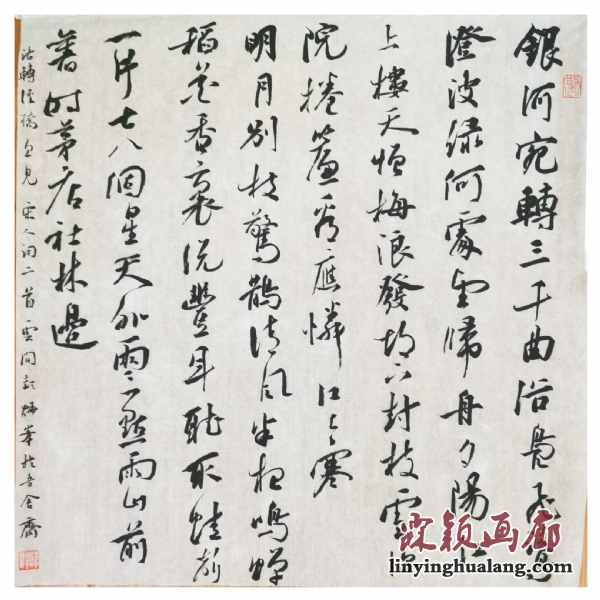 銀河宛轉三千曲浴鳧飛鷺
澄波綠何處望歸舟夕陽江
上樓天憎梅浪發故下封枝雪深
院捲簾看應憐江上寒
明月別枝驚鵲清風半夜鳴蟬
稻花香裏說豐年聽取蛙聲
一片七八個星天外兩三點雨山前
舊時茅店社林邊
路轉溪橋忽見 宋人詞二首 雲間
霖颖画廊
linyinghualang.com